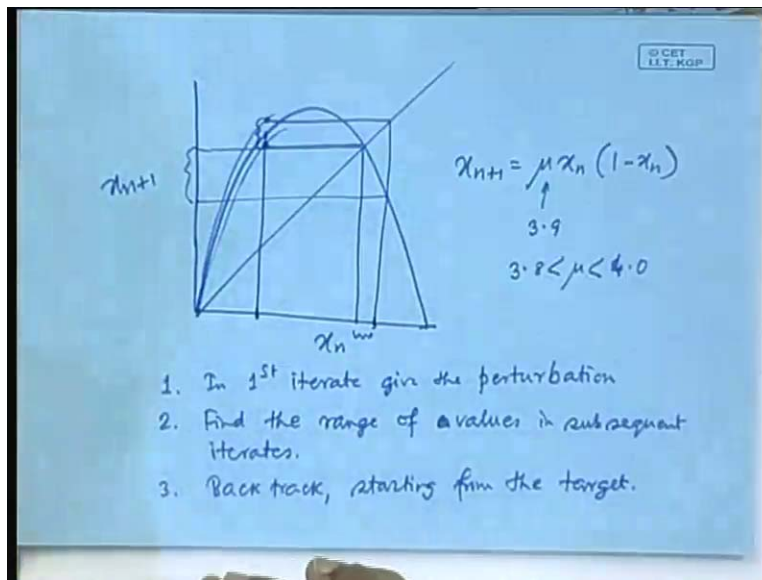 © CET
I.I.T. KGP
xₙ₊₁
xₙ₊₁ = μ xₙ (1-xₙ)
↑
3.9
3.8 < μ < 4.0
xₙ
1. In 1st iterate give the perturbation
2. Find the range of values in subsequent
iterates.
3. Back track, starting from the target.